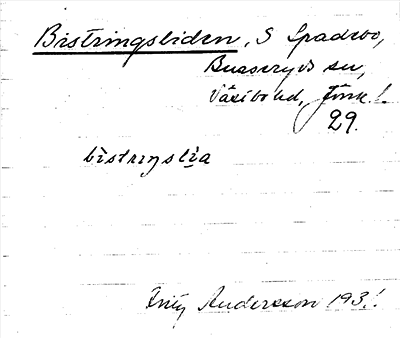 Bistringsliden, S Spadebo,
Busseryds sn,
Västbo hd, Jönk. l.
29.
bistriŋslia
Fritz Andersson 193!